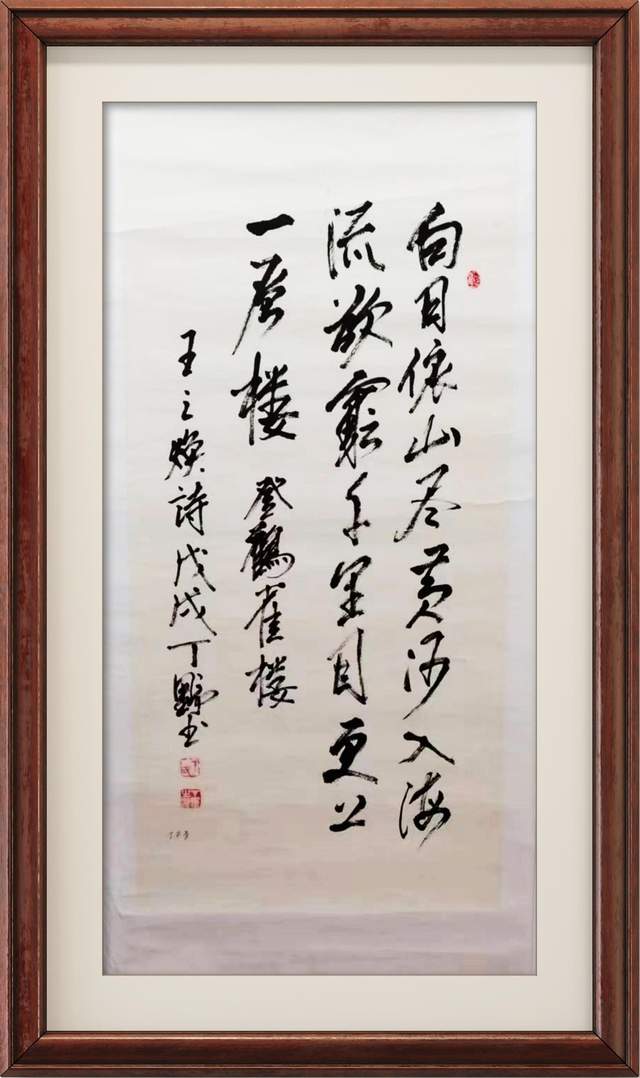 白日依山尽黄河入海
流欲窮千里目更上
一层楼 登鹳雀楼
王之焕詩戊戌丁野书